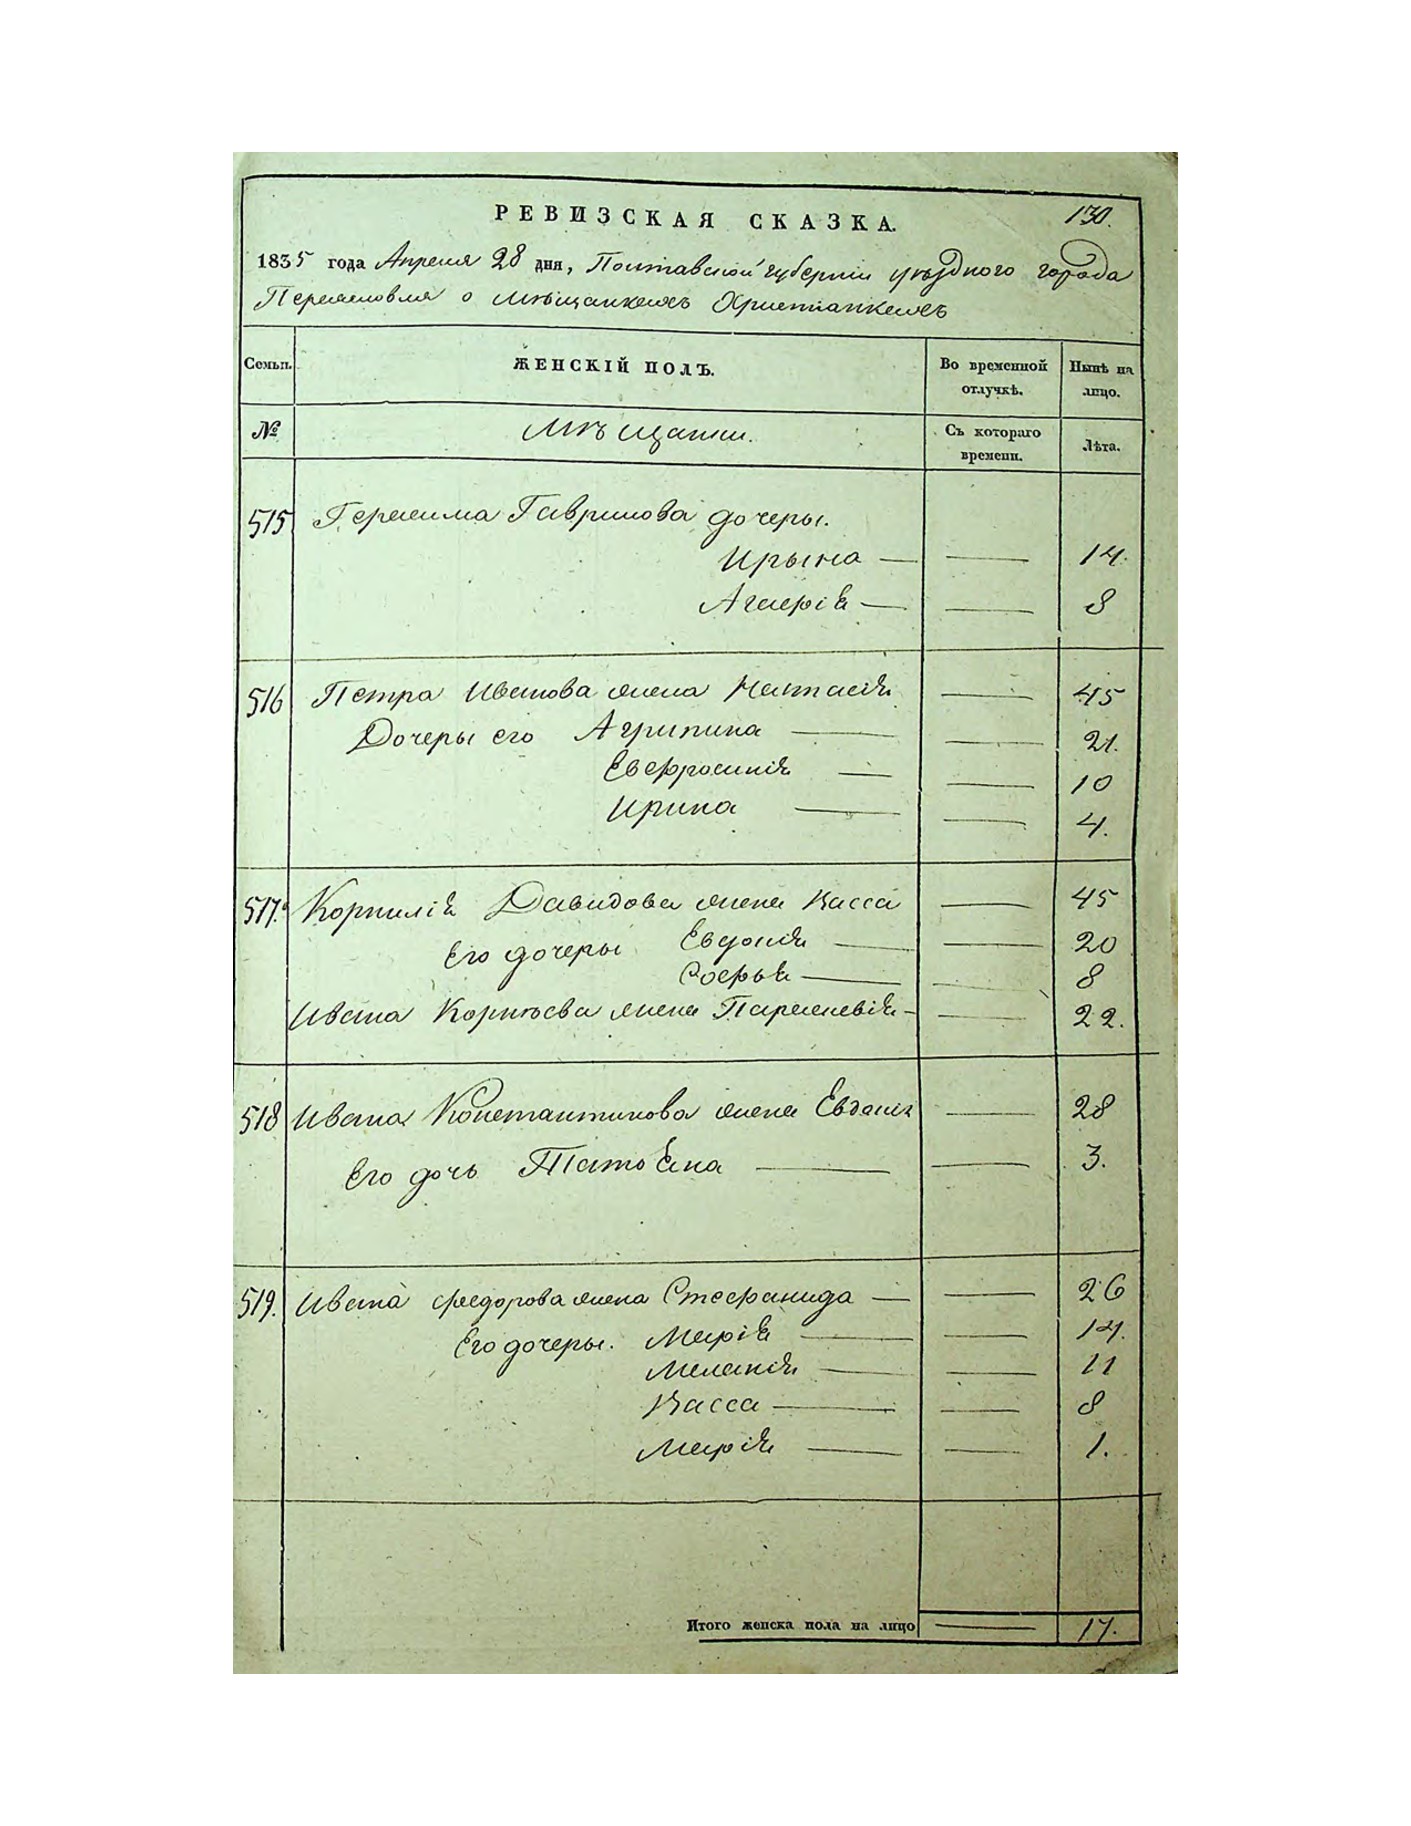 РЕВИЗСКАЯ СКАЗКА.
130.
1835 года Апреля 28 дня, Полтавской губернии уѣздного города
Переяславля о мѣщанкахъ Христианкахъ
Семьи. ЖЕНСКІЙ ПОЛЪ. Во временной отлучкѣ. Нынѣ на лицо.
№ Мѣщанки. Съ котораго времени. Лѣта.
515 Герасима Гаврилова дочеры.
Ирына — — 14.
Агафія — — 8
516 Петра Иванова жена Настасія — 45
Дочеры его Агрипина — — 21.
Евфросинія — — 10
Ирина — — 4.
517. Корнилія Давидова жена Васса — 45
Его дочеры Евдокія — — 20
Софья — — 8
Ивана Корнѣева жена Параскевія — — 22.
518 Ивана Константинова жена Евдокія — 28
Его дочь Татьяна — — 3.
519. Ивана Федорова жена Стефанида — — 26
Его дочеры. Марія — — 14.
Меланія — — 11
Васса — — 8
Марія — — 1.
Итого женска пола на лицо — 17.